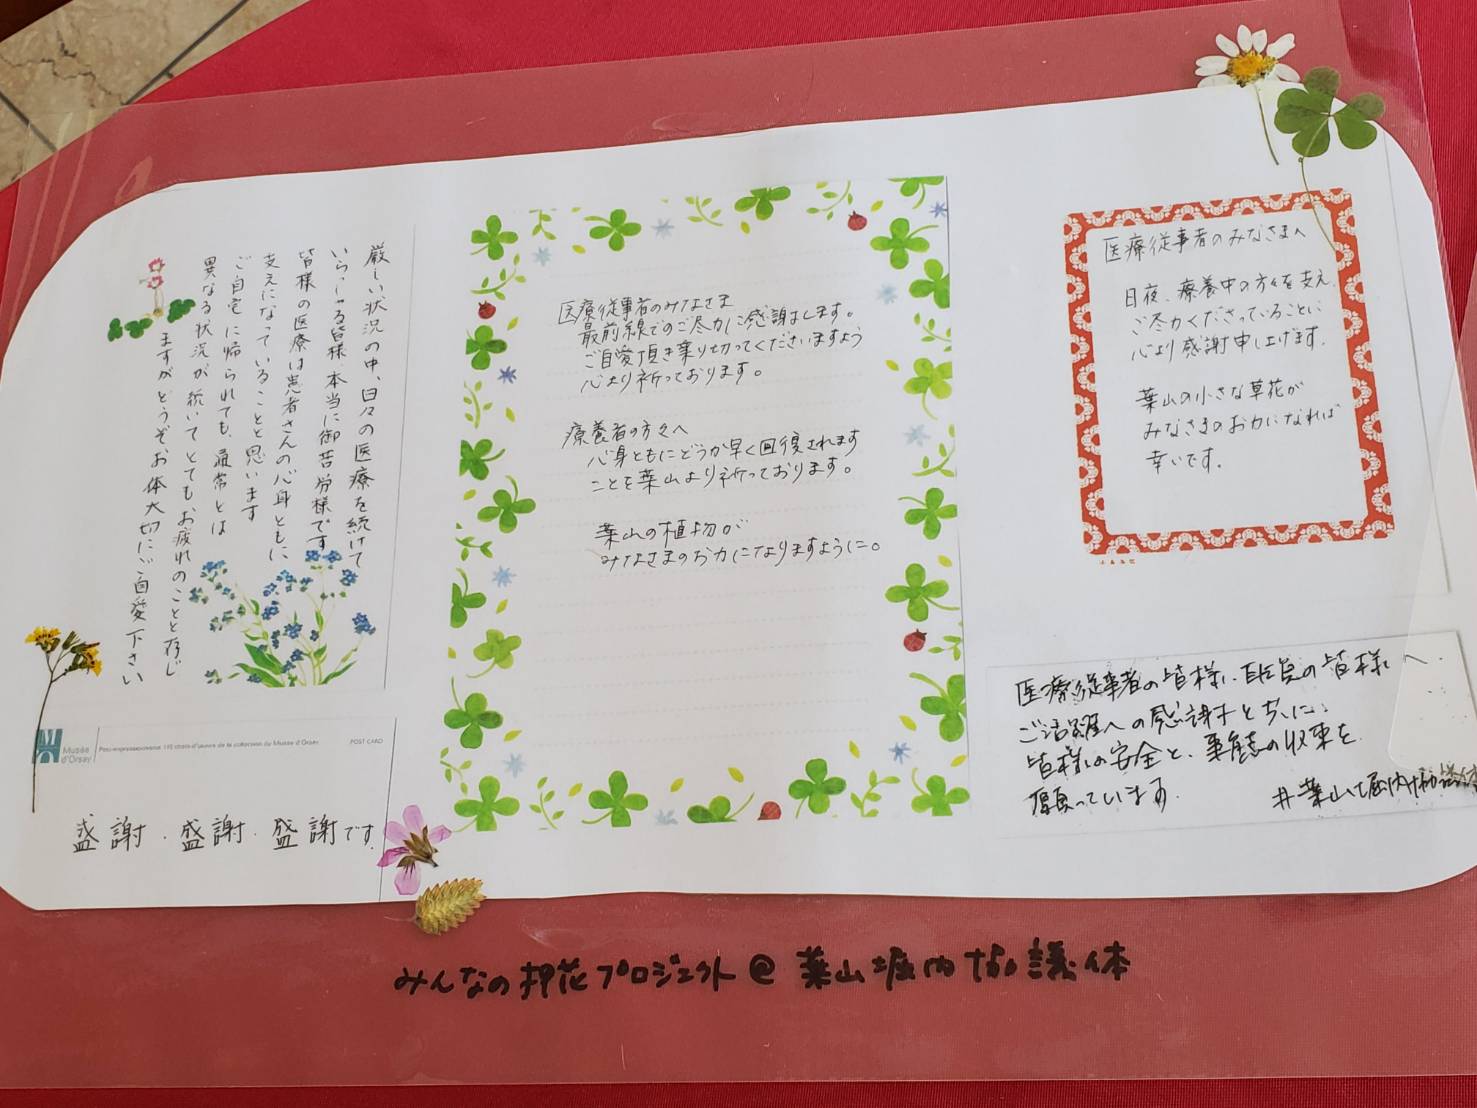 厳しい状況の中、日々の医療を続けて
いらっしゃる皆様本当に御苦労様です
皆様の医療は患者さんの心身ともに
支えになっていることと思います
ご自宅に帰られても、通常とは
異なる状況が続いてとてもお疲れのことと存じ
ますがどうぞお体大切にご自愛下さい
Musée
d'Orsay
POST CARD
感謝・感謝・感謝です
医療従事者のみなさま
最前線でのご尽力に感謝します。
ご自愛頂き乗り切ってくださいますよう
心より祈っております。
療養者の方々へ
心身ともにどうか早く回復されます
ことを葉山より祈っております。
葉山の植物が
みなさまのお力になりますように。
医療従事者のみなさまへ
日夜、療養中の方々を支え
ご尽力くださっていることに
心より感謝申し上げます。
葉山の小さな草花が
みなさまのお力になれば
幸いです。
医療従事者の皆様、職員の皆様へ
ご活躍への感謝とともに、
皆様の安全と、事態の収束を
願っています。
#葉山堀内協議体
みんなの押花プロジェクト@葉山堀内協議体